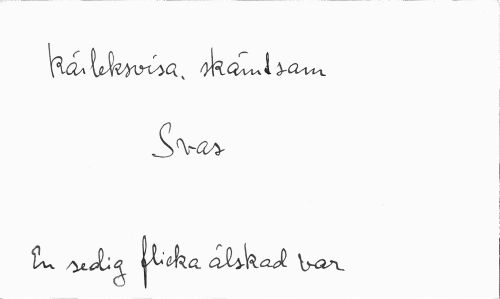 Kärleksvisa, skämtsam
Svas
En sedig flicka älskad var